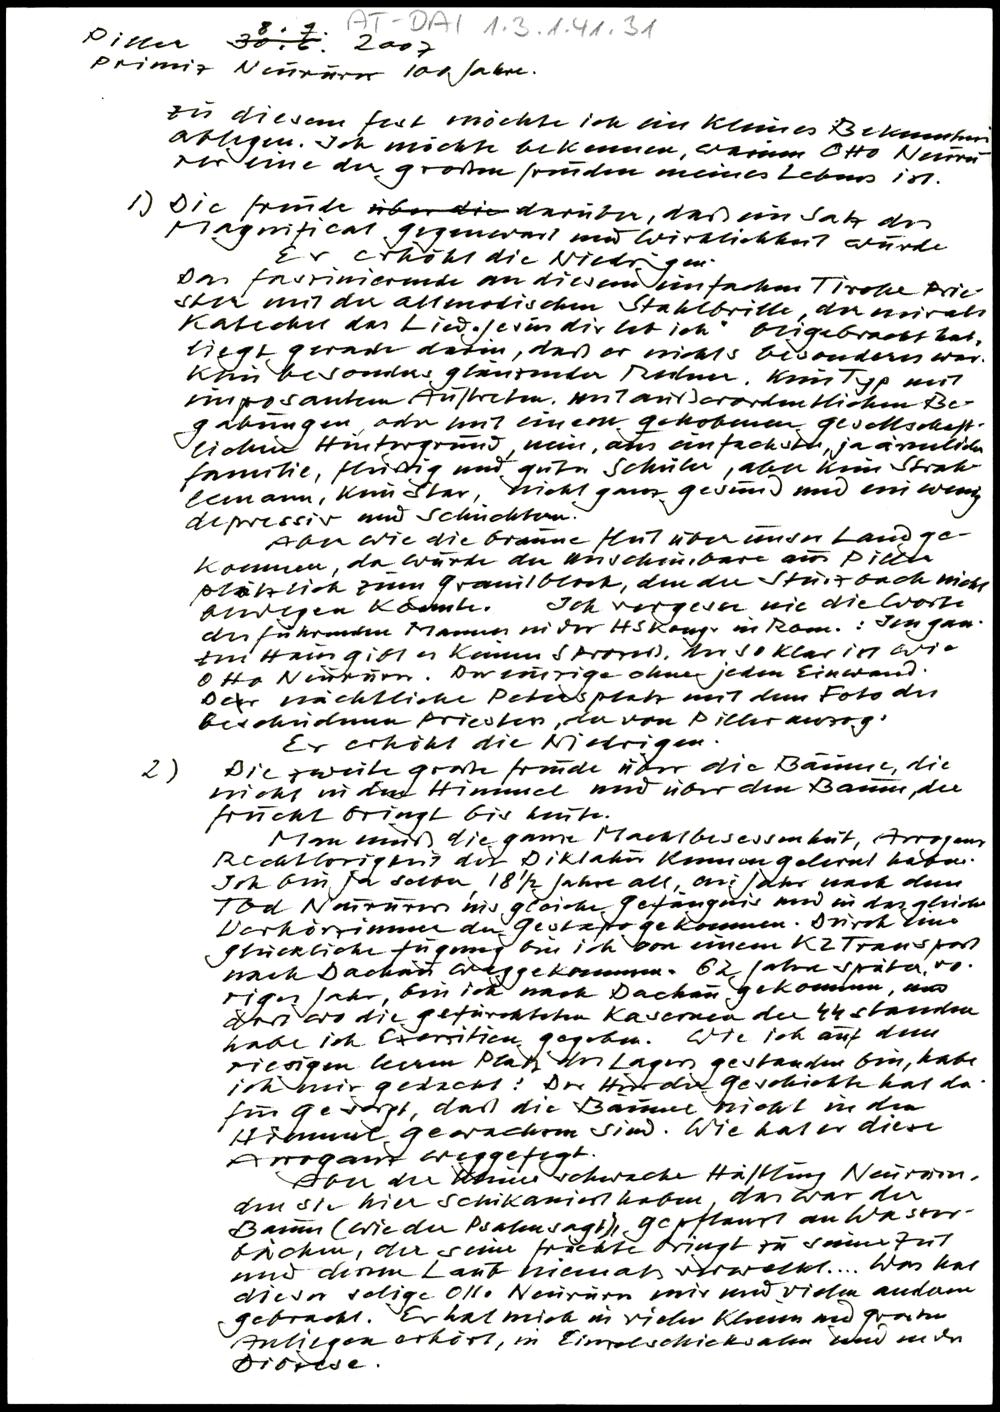 AT-DAI 1.3.1.41.31
8. 7.
Piller 30. 6. 2007
Primiz Neururer 100 Jahre.
Zu diesem Fest möchte ich ein kleines Bekenntnis
ablegen. Ich möchte bekennen, warum Otto Neuru
rer eine der großen Freuden meines Lebens ist.
1) Die Freude über die darüber, daß ein Satz des
Magnificat Gegenwart und Wirklichkeit wurde
Er erhöht die Niedrigen.
Das Faszinierende an diesem einfachen Tiroler Prie-
ster mit der altmodischen Stahlbrille, der mir als
Katechet das Lied "Jesus dir leb ich" beigebracht hat,
liegt gerade darin, daß er nichts besonderes war.
Kein besonders glänzender Redner. Kein Typ mit
imposantem Auftreten, mit außerordentlichen Be-
gabungen, oder mit einem gehobenen gesellschaft-
lichen Hintergrund, nein, aus einfachster, ja ärmlicher
Familie, fleißig und guter Schüler, aber kein Strah-
lemann, kein Star, nicht ganz gesund und ein wenig
depressiv und schüchtern.
Aber wie die braune Flut über unser Land ge-
kommen, da wurde der unscheinbare aus Piller
plötzlich zum Granitblock, den der Sturzbach nicht
bewegen konnte. Ich vergesse nie die Worte
des führenden Mannes in der HSKongr. in Rom. : Im gan-
zen Haus gibt es keinen Prozeß, der so klar ist wie
Otto Neururer. Der einzige ohne jeden Einwand.
Der nächtliche Petersplatz mit dem Foto des
bescheidenen Priesters, der von Piller auszog:
Er erhöht die Niedrigen.
2) Die zweite große Freude über die Bäume, die
nicht in den Himmel und über den Baum, der
Frucht bringt bis heute.
Man muß die ganze Machtbesessenheit, Arroganz
Rechtlosigkeit der Diktatur kennengelernt haben.
Ich bin ja selber, 18 1/2 Jahre alt, ein Jahr nach dem
Tod Neururers ins gleiche Gefängnis und in das gleiche
Verhörzimmer der Gestapo gekommen. Durch eine
glückliche Fügung bin ich von einem KZ Transport
nach Dachau weggekommen. 62 Jahre später, vo-
riges Jahr, bin ich nach Dachau gekommen, und
dort wo die gefürchteten Kasernen der SS standen
habe ich Exerzitien gegeben. Wie ich auf dem
riesigen leeren Platz des Lagers gestanden bin, habe
ich mir gedacht: Der Herr der Geschichte hat da-
für gesorgt, daß die Bäume nicht in den
Himmel gewachsen sind. Wie hat er diese
Arroganz weggefegt.
Aber der kleine schwache Häftling Neururer,
den sie hier schikaniert haben, das war der
Baum (wie der Psalm sagt), gepflanzt an Wasser-
bächen, der seine Früchte bringt zu seiner Zeit
und dessen Laub niemals verwelkt.... Was hat
dieser selige Otto Neururer mir und vielen anderen
gebracht. Er hat mich in vielen kleinen und großen
Anliegen erhört, in Einzelschicksalen und in der
Diözese.